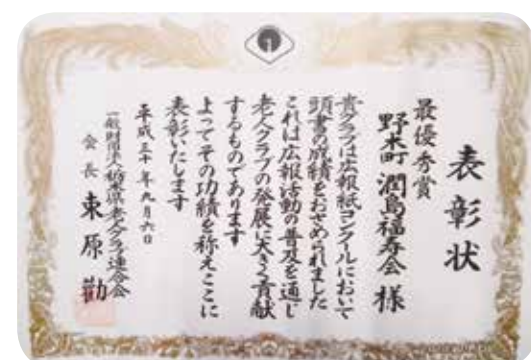 表彰状
最優秀賞
野木町 潤島福寿会 様
貴クラブは広報紙コンクールにおいて
頭書の成績をおさめられました
これは広報活動の普及を通じ
老人クラブの発展に大きく貢献
するものであります
よってその功績を称えここに
表彰いたします
平成三十年九月六日
一般財団法人栃木県老人クラブ連合会
会長 東原 勤